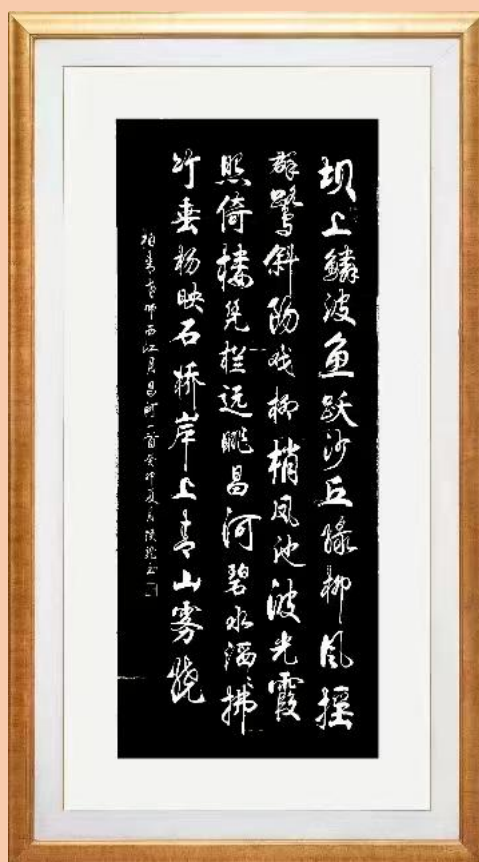 坝上鳞波鱼跃沙丘绿柳风摇
群鹭斜阳戏柳梢凤池波光霞
照倚楼凭栏远眺昌河碧水滔滔拂
竹垂杨映石桥岸上青山雾绕
柏青老师西江月昌町一首癸卯夏